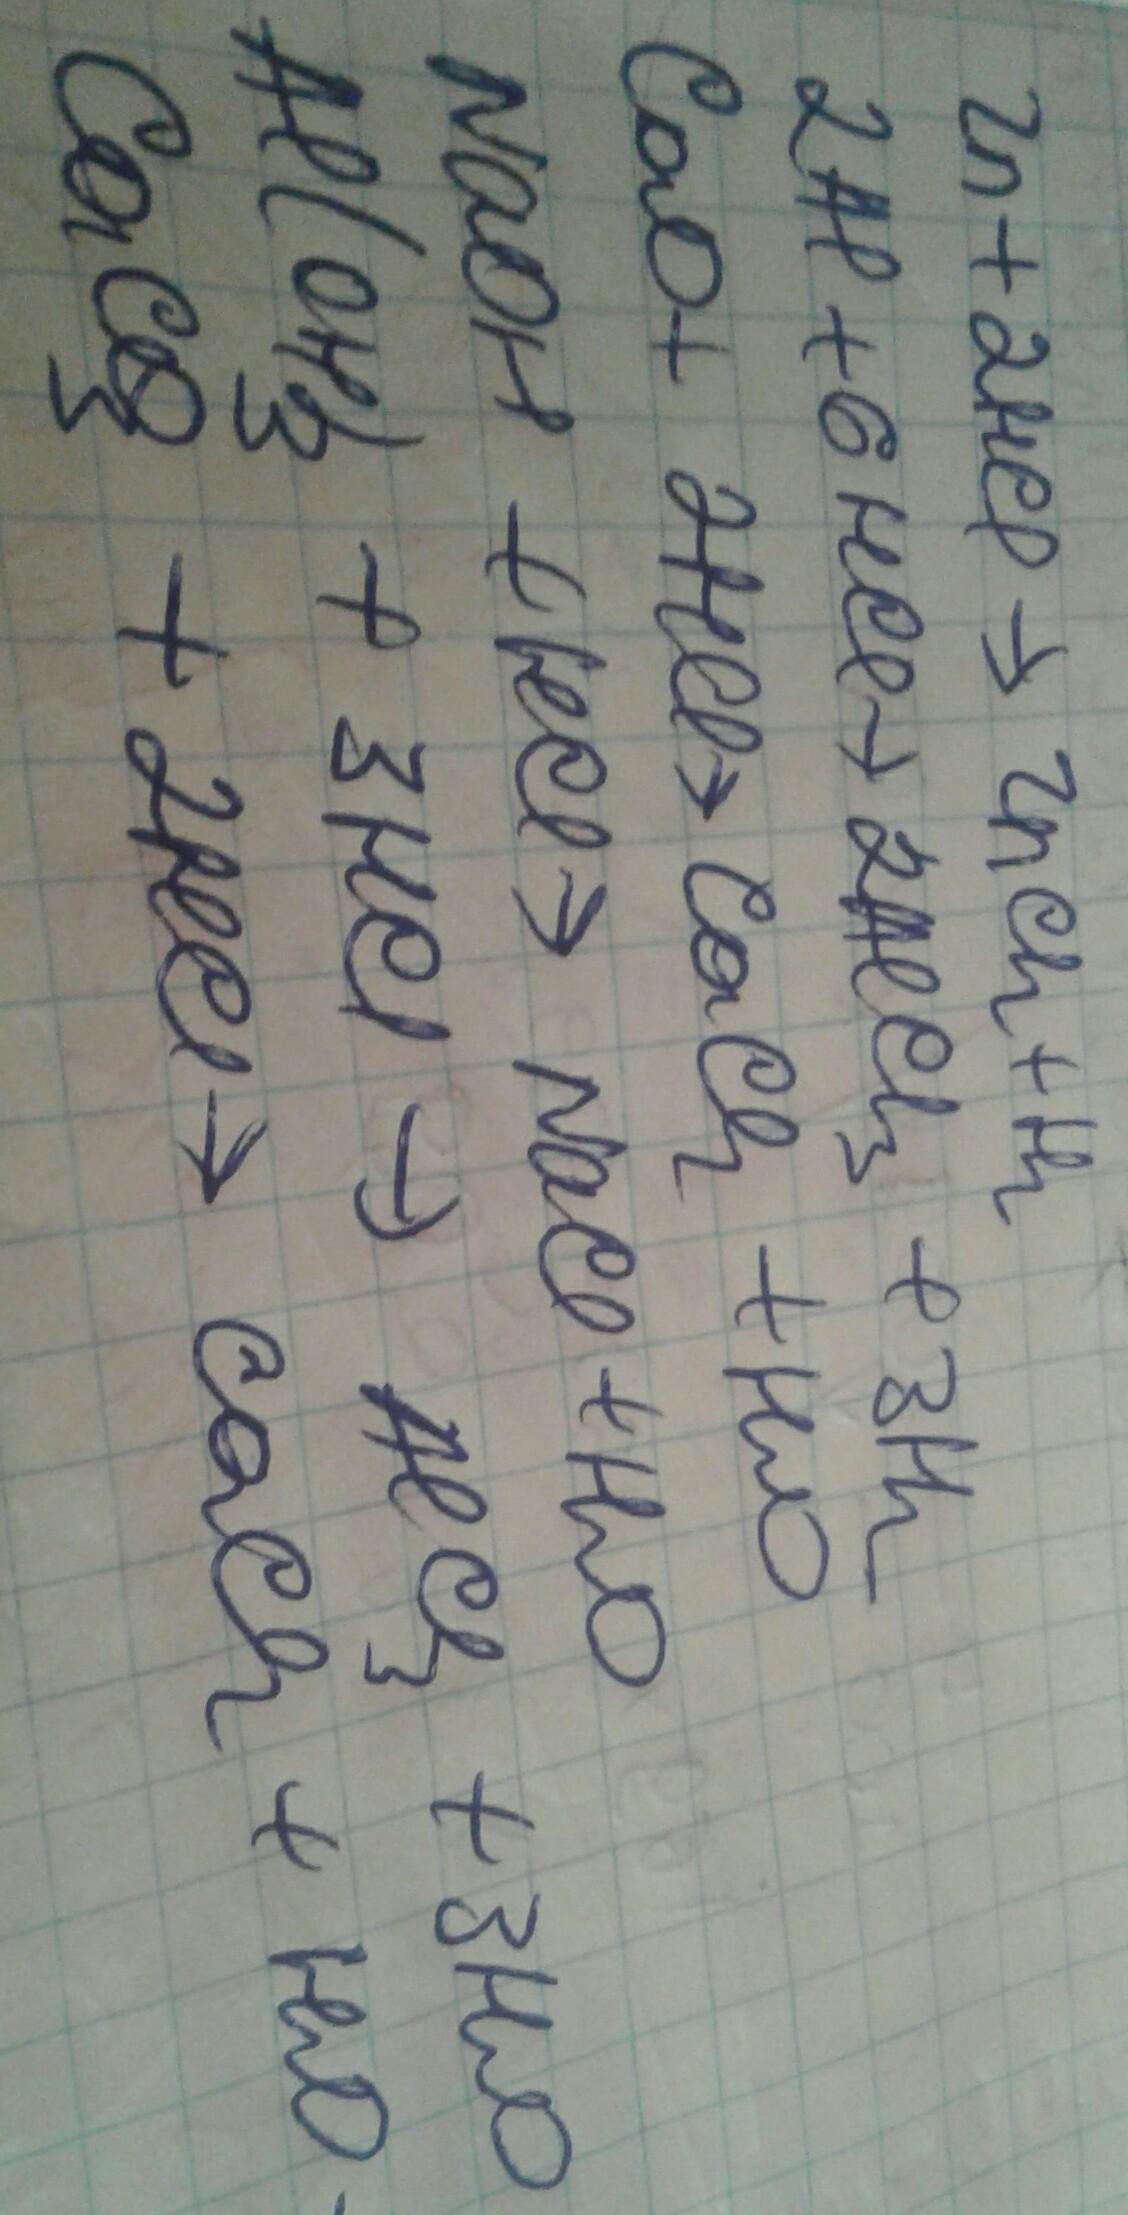 Zn + 2HCl → ZnCl₂ + H₂
2Al + 6HCl → 2AlCl₃ + 3H₂
CaO + 2HCl → CaCl₂ + H₂O
NaOH + HCl → NaCl + H₂O
Al(OH)₃ + 3HCl → AlCl₃ + 3H₂O
CaCO₃ + 2HCl → CaCl₂ + H₂O